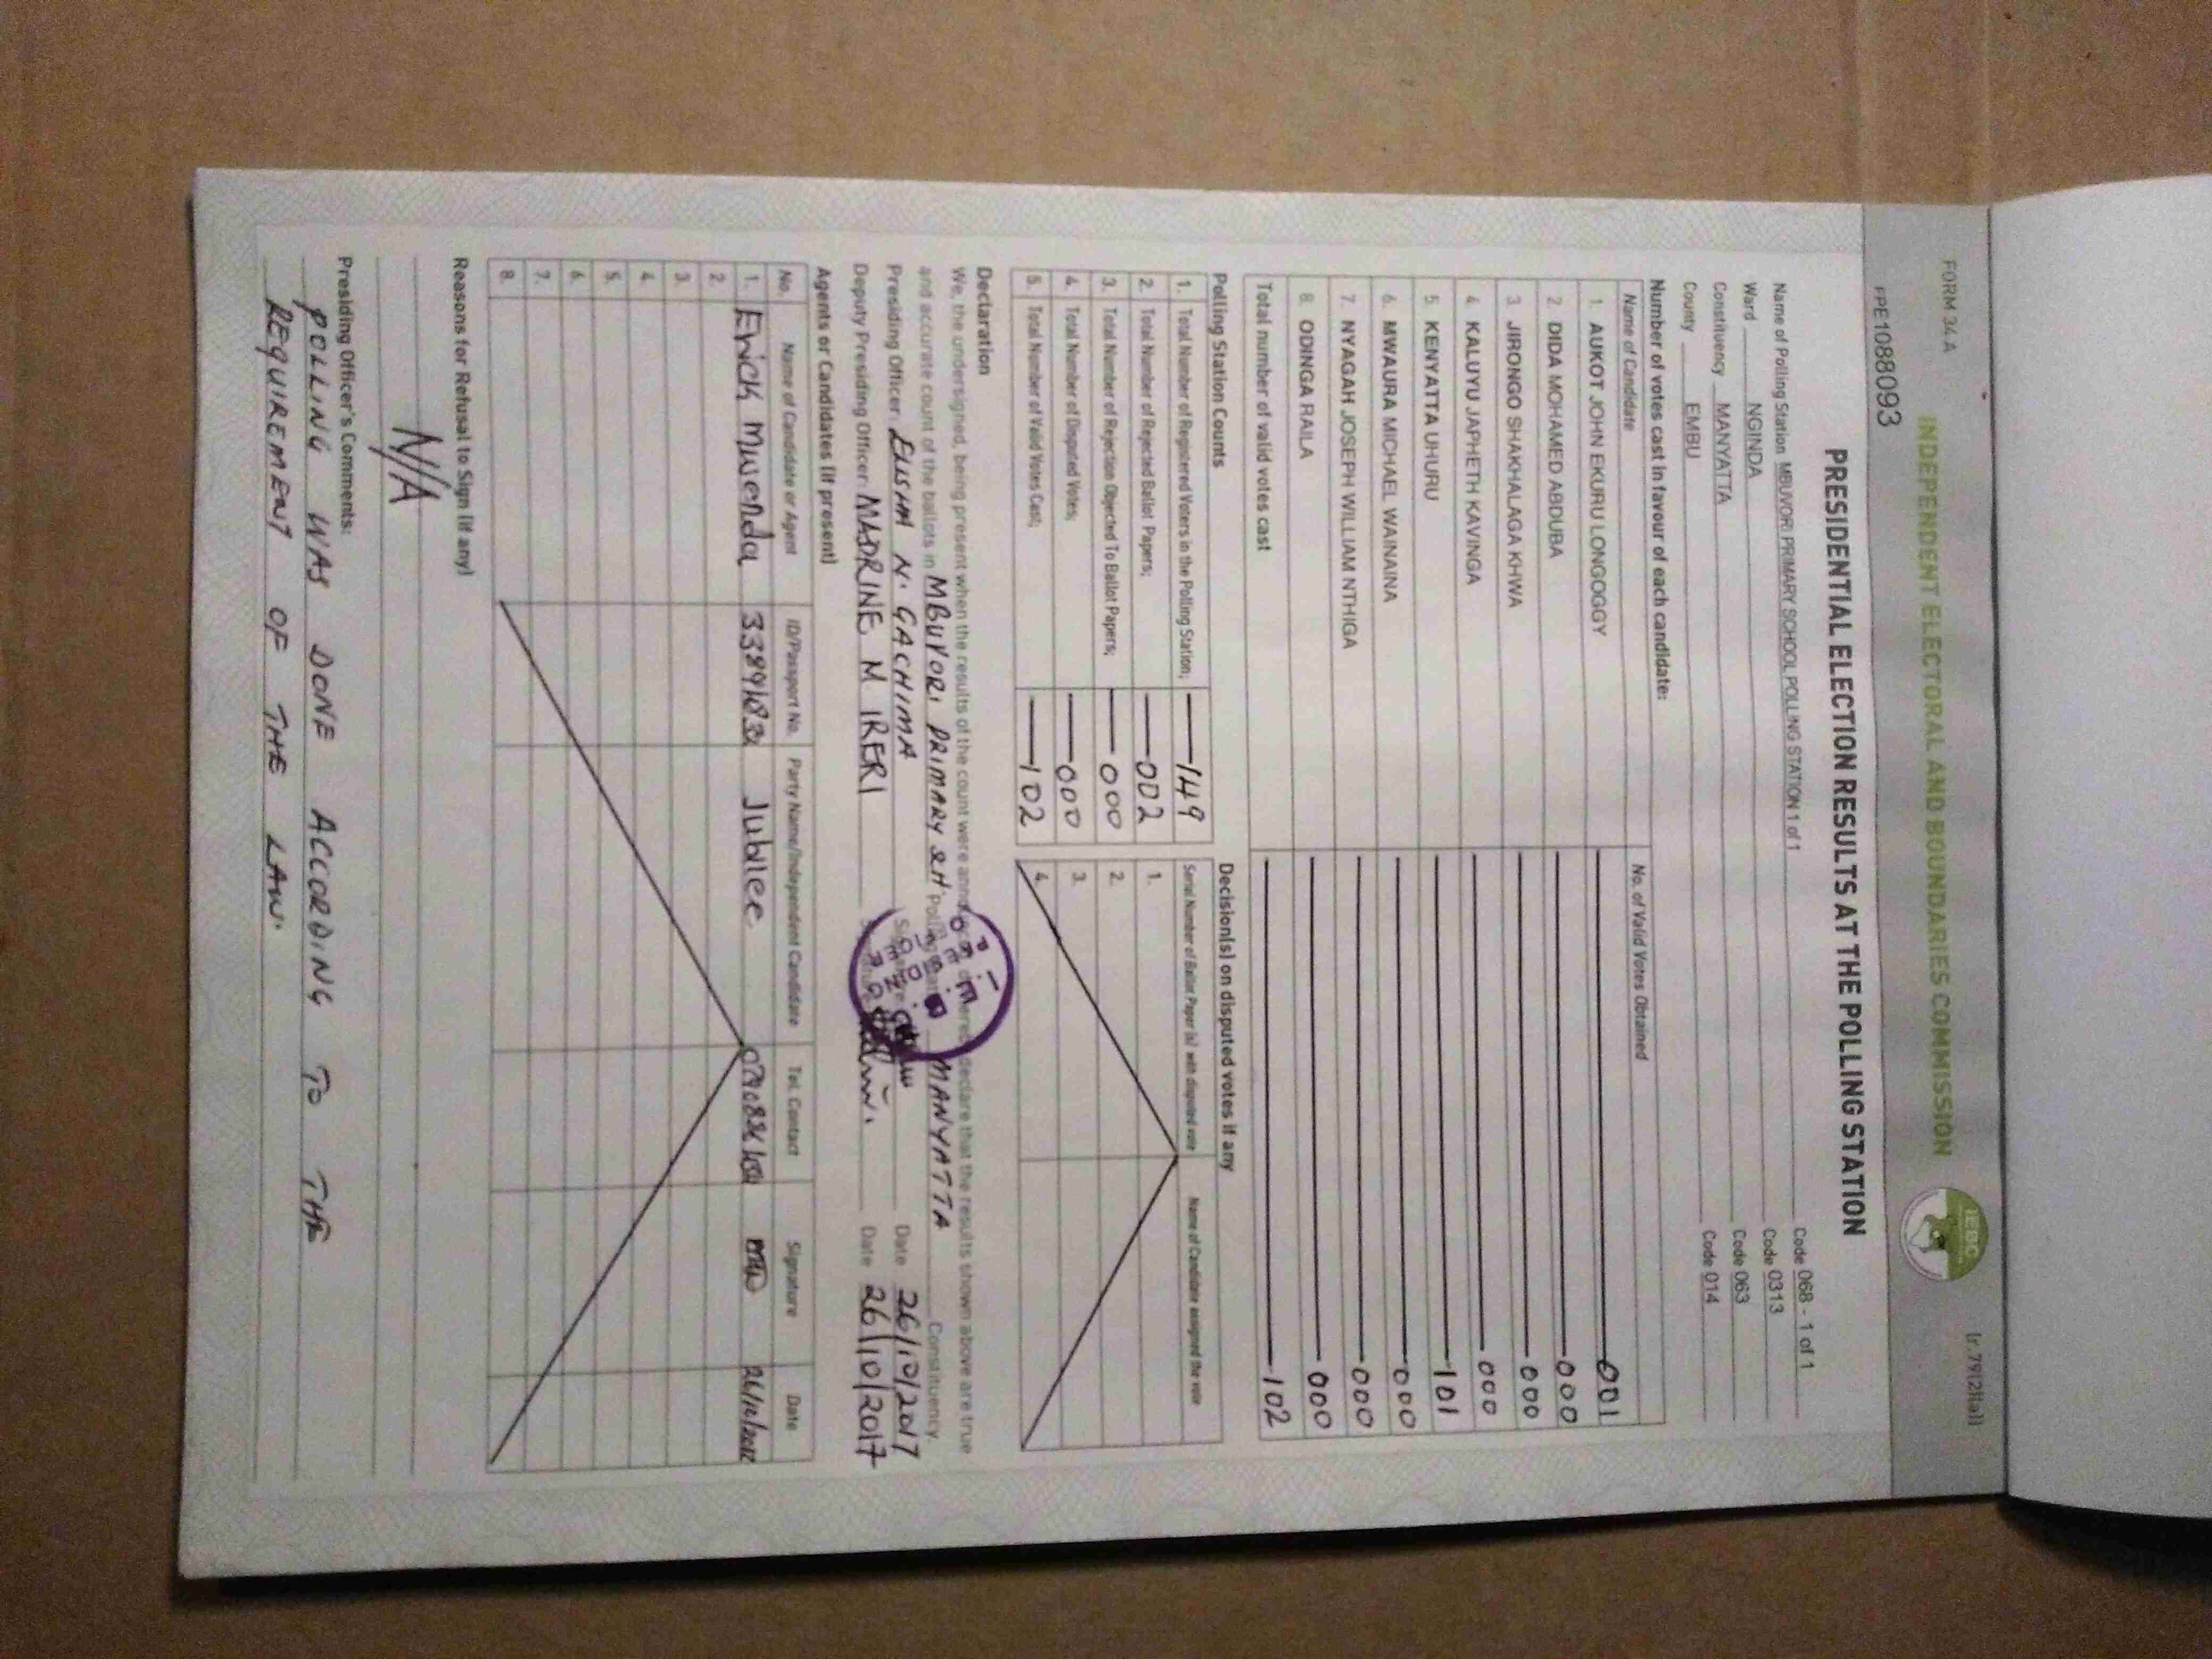 FORM 34A
[r.79(2)(a)]
INDEPENDENT ELECTORAL AND BOUNDARIES COMMISSION
IEBC
FPE1088093
PRESIDENTIAL ELECTION RESULTS AT THE POLLING STATION
Name of Polling Station MBUVORI PRIMARY SCHOOL POLLING STATION 1 of 1 Code 068 - 1 of 1
Ward NGINDA Code 0313
Constituency MANYATTA Code 063
County EMBU Code 014
Number of votes cast in favour of each candidate:
Name of Candidate No. of Valid Votes Obtained
1. AUKOT JOHN EKURU LONGOGGY 001
2. DIDA MOHAMED ABDUBA 000
3. JIRONGO SHAKHALAGA KHWA 000
4. KALUYU JAPHETH KAVINGA 000
5. KENYATTA UHURU 101
6. MWAURA MICHAEL WAINAINA 000
7. NYAGAH JOSEPH WILLIAM NTHIGA 000
8. ODINGA RAILA 000
Total number of valid votes cast 102
Polling Station Counts
1. Total Number of Registered Voters in the Polling Station; 149
2. Total Number of Rejected Ballot Papers; 002
3. Total Number of Rejection Objected To Ballot Papers; 000
4. Total Number of Disputed Votes; 000
5. Total Number of Valid Votes Cast; 102
Decision(s) on disputed votes if any
Serial Number of Ballot Paper (s) with disputed vote Name of Candidate assigned the vote
1.
2.
3.
4.
Declaration
We, the undersigned, being present when the results of the count were declare that the results shown above are true
and accurate count of the ballots in MBUVORI PRIMARY SCH. Polling MANYATTA Constituency.
Presiding Officer: ELISHA N. GACHIMA Date 26/10/2017
Deputy Presiding Officer: MADRINE M IRERI Date 26/10/2017
Agents or Candidates (if present)
No. Name of Candidate or Agent ID/Passport No. Party Name/Independent Candidate Tel. Contact Signature Date
1. Erick Mwenda Jubilee
2.
3.
4.
5.
6.
7.
8.
Reasons for Refusal to Sign (if any)
N/A
Presiding Officer's Comments:
POLLING WAS DONE ACCORDING TO THE
REQUIREMENT OF THE LAW.